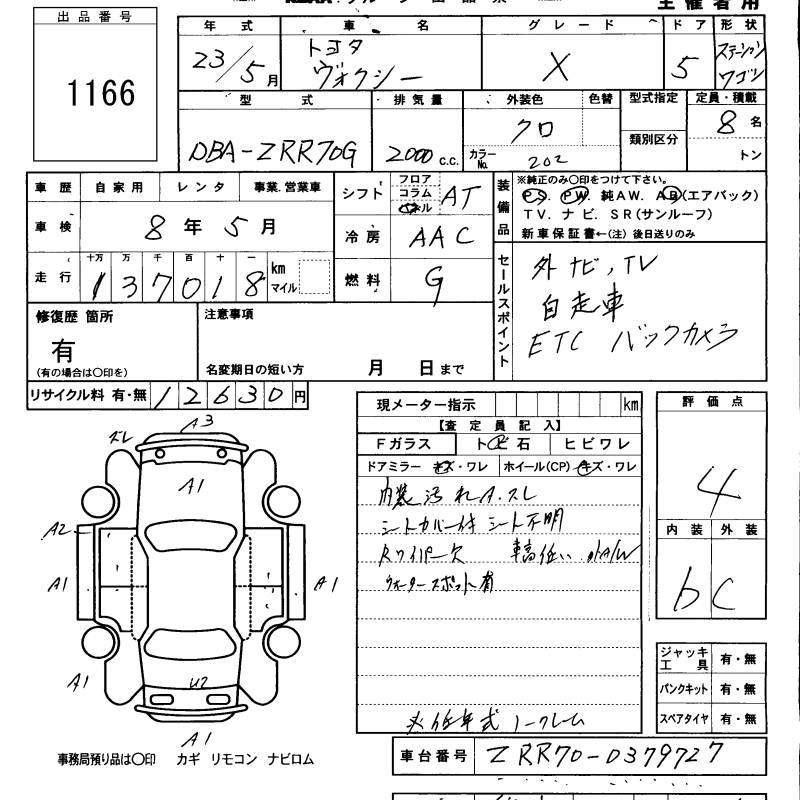 出品番号
1166
年式 車名 グレード ドア 形状
23/5月 トヨタ ヴォクシー X 5 ステーションワゴン
型式 排気量 外装色 色替 型式指定 定員・積載
DBA-ZRR70G 2000 c.c. クロ カラーNo. 202 類別区分 8名 トン
車歴 自家用 レンタ 事業.営業車
車検 8年 5月
走行 十万 万 千 百 十 一
137018 km マイル
シフト フロア コラム パネル AT
冷房 AAC
燃料 G
装備品 ※純正のみ○印をつけて下さい。
PS. PW. 純AW. AB(エアバック)
TV. ナビ. SR(サンルーフ)
新車保証書←(注) 後日送りのみ
セールスポイント
外ナビ, TV
自走車
ETC バックカメラ
修復歴 箇所
有
(有の場合は○印を)
注意事項
名変期日の短い方 月 日まで
リサイクル料 有・無 12630円
現メーター指示 km
【査定員記入】
Fガラス トビ石 ヒビワレ
ドアミラー キズ・ワレ ホイール(CP) キズ・ワレ
内装汚れA.スレ
シートカバー付 シート不明
Rワイパー欠 車高低い
ウォータースポット有
年式ノークレーム
評価点
4
内装 外装
b C
ズレ A3
A1
A2
A1 A1
A1 U2
A1
ジャッキ工具 有・無
パンクキット 有・無
スペアタイヤ 有・無
事務局預り品は○印 カギ リモコン ナビロム
車台番号 ZRR70-0379727